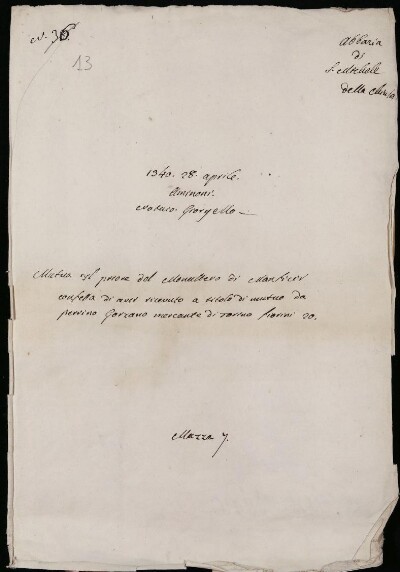 N. 36.
13
Abbazia
di
S. Michele
della Chiusa
1340. 28. aprile.
Notaro Giorgello
Mutuo del priore del Monastero di
confessa di aver ricevuto a titolo di mutuo da
perrino Gorzano mercante di torino fiorini 20.
Mazzo 7.